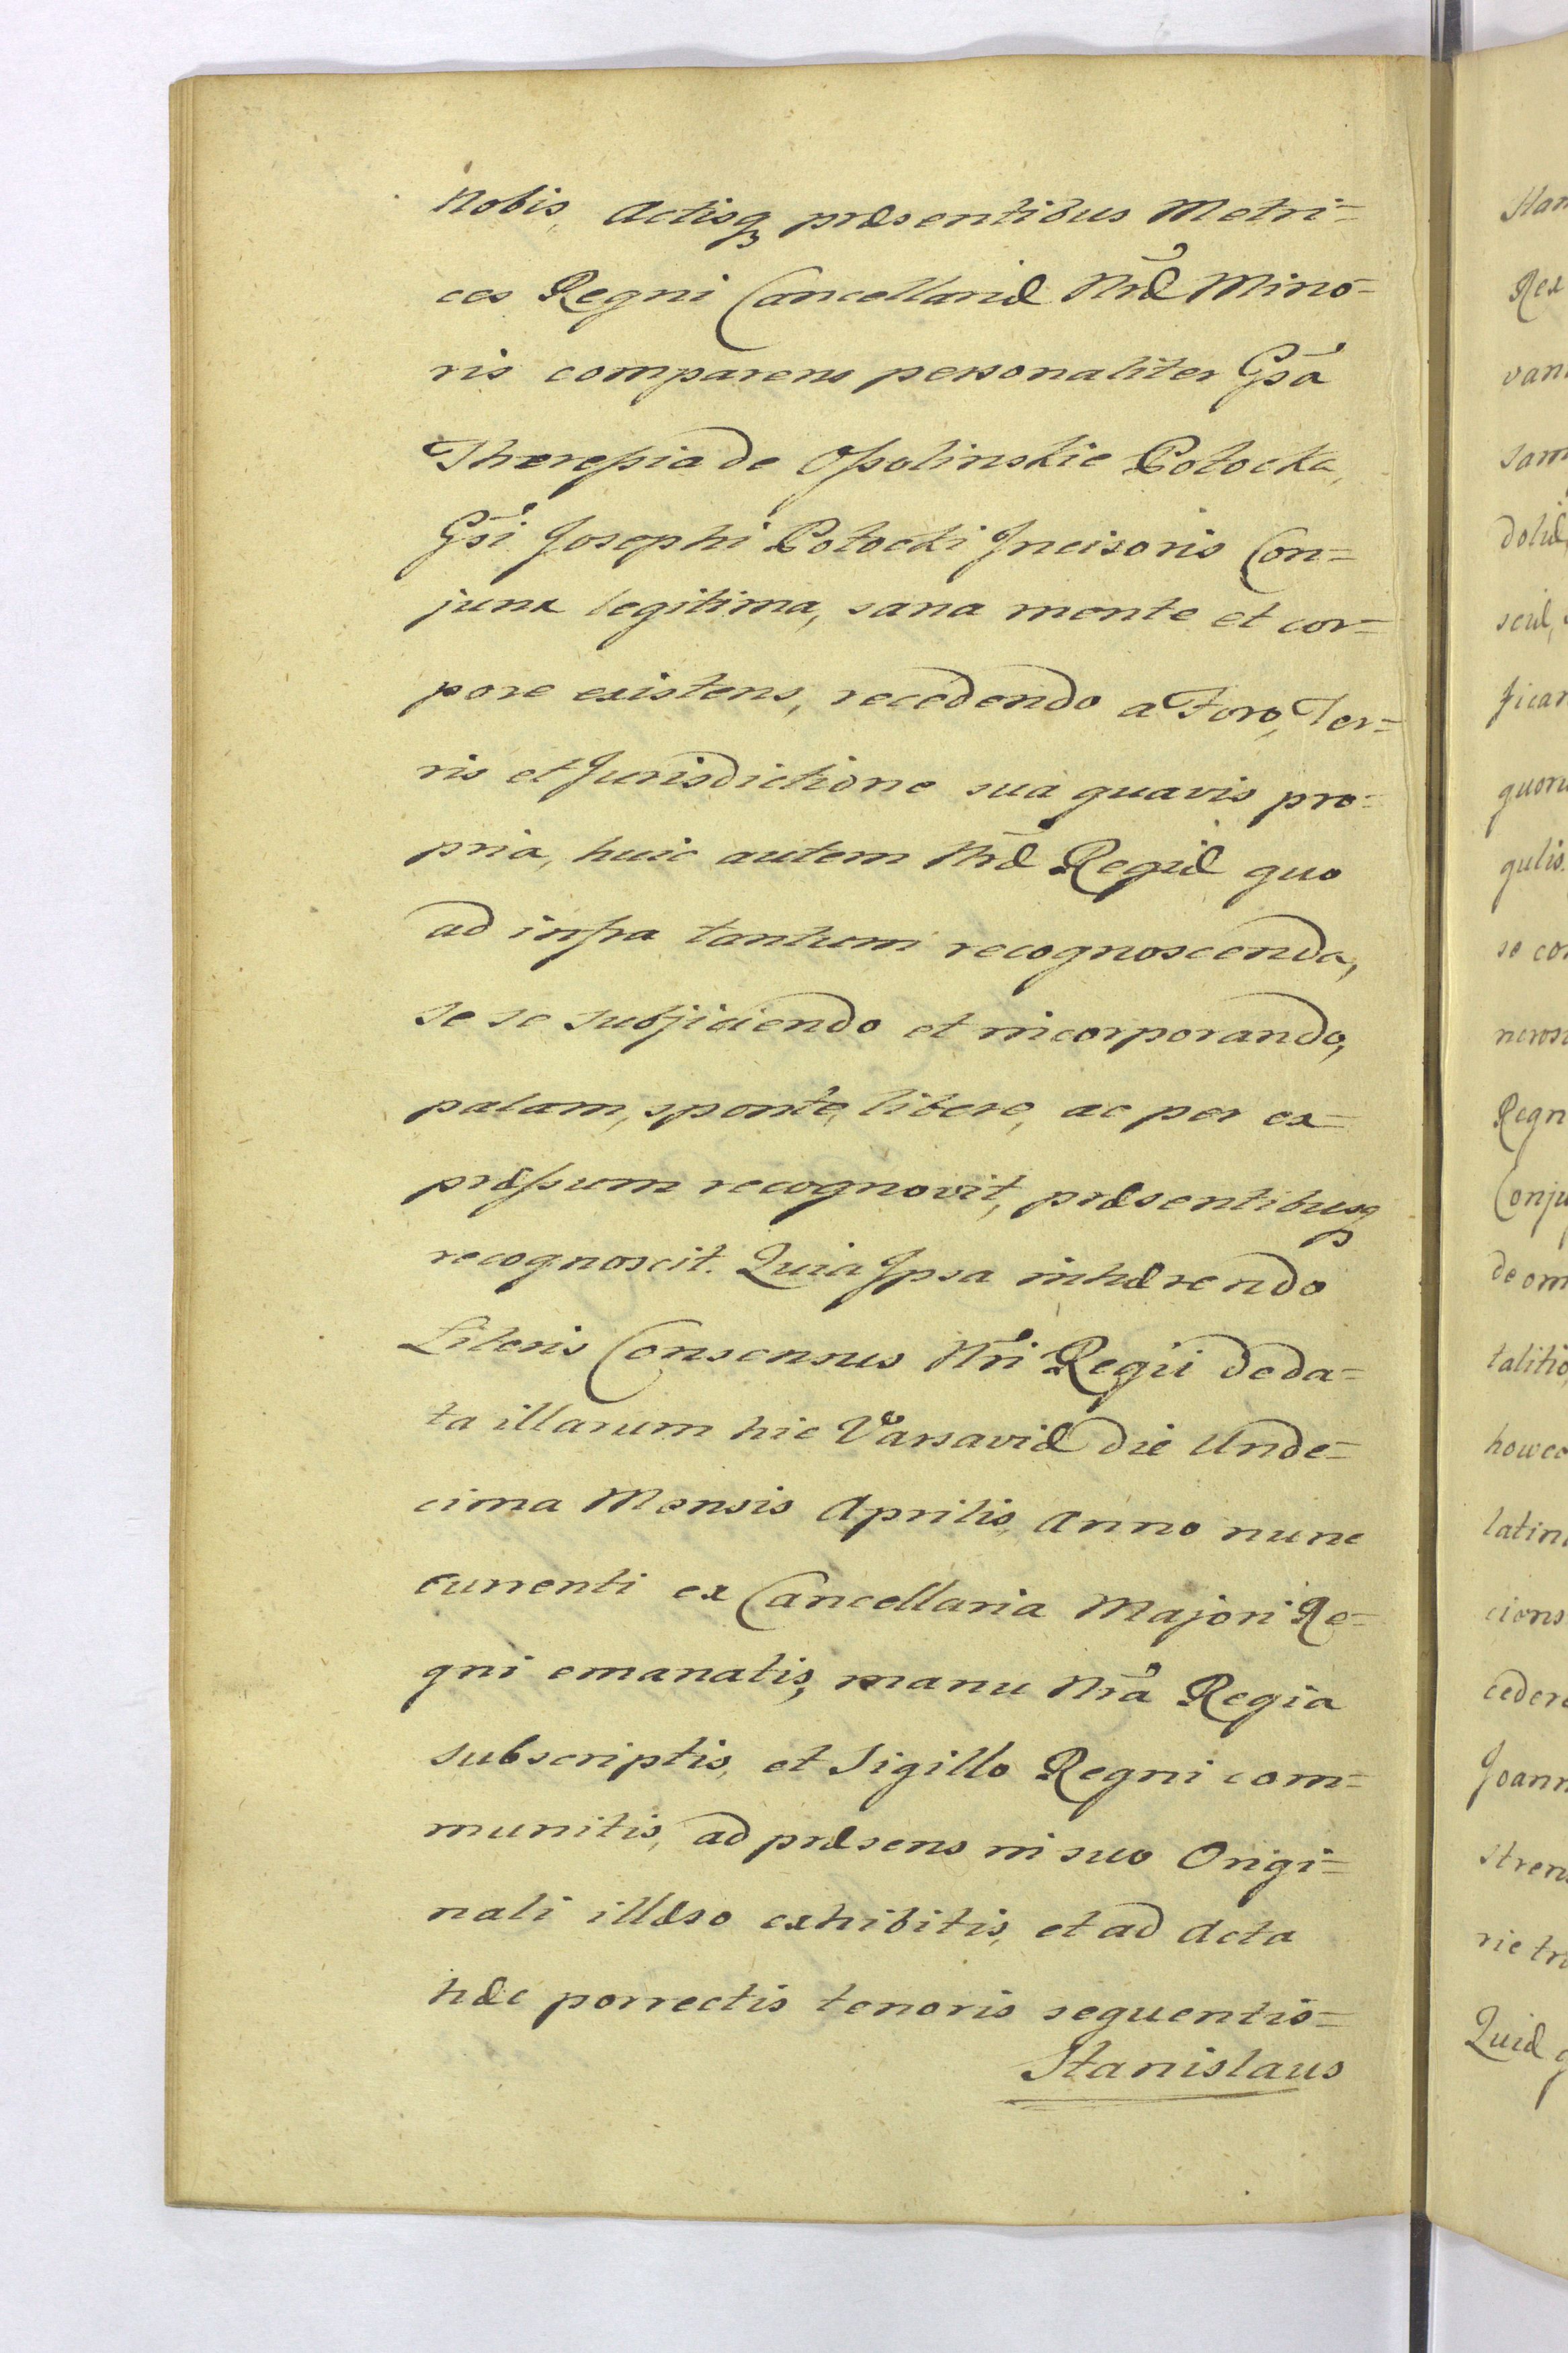 Nobis, Actisq3 præsentibus Metri=
ces Regni Cancellariæ Nræ Mino=
ris comparens personaliter Gsã
Theressia de Ossolinskie Potocka,
Gsi Josephi Potocki Incisoris Con=
junx legitima, sana mente et cor=
pore existens, recedendo a Foro, Ter=
ris et Jurisdictione sua quavis pro=
pria, huic autem Nræ Regiæ quo
ad infra tantum recognoscenda,
se se subjiciendo et incorporando,
palam, sponte, libere, ac per ex=
præssum recognovit, præsentibusq3
recognoscit. Quia Ipsa inhærendo
Literis Consensus Nri Regii de da=
ta illarum hic Varsaviæ die Unde=
cima Mensis Aprilis, Anno nunc
currenti ex Cancellaria Majori Re=
gni emanatis, manu Nrã Regia
subscriptis, et Sigillo Regni com=
munitis, ad præsens in suo Origi=
nali illæso exhibitis, et ad Acta
hæc porrectis tenoris sequentis=
Stanislaus
Rex
dolæ,
gulis.
se
Regn
Conju
de om
talitio
howec
latin
cions
cedere
Joann
stren
rie tr
Quiæ